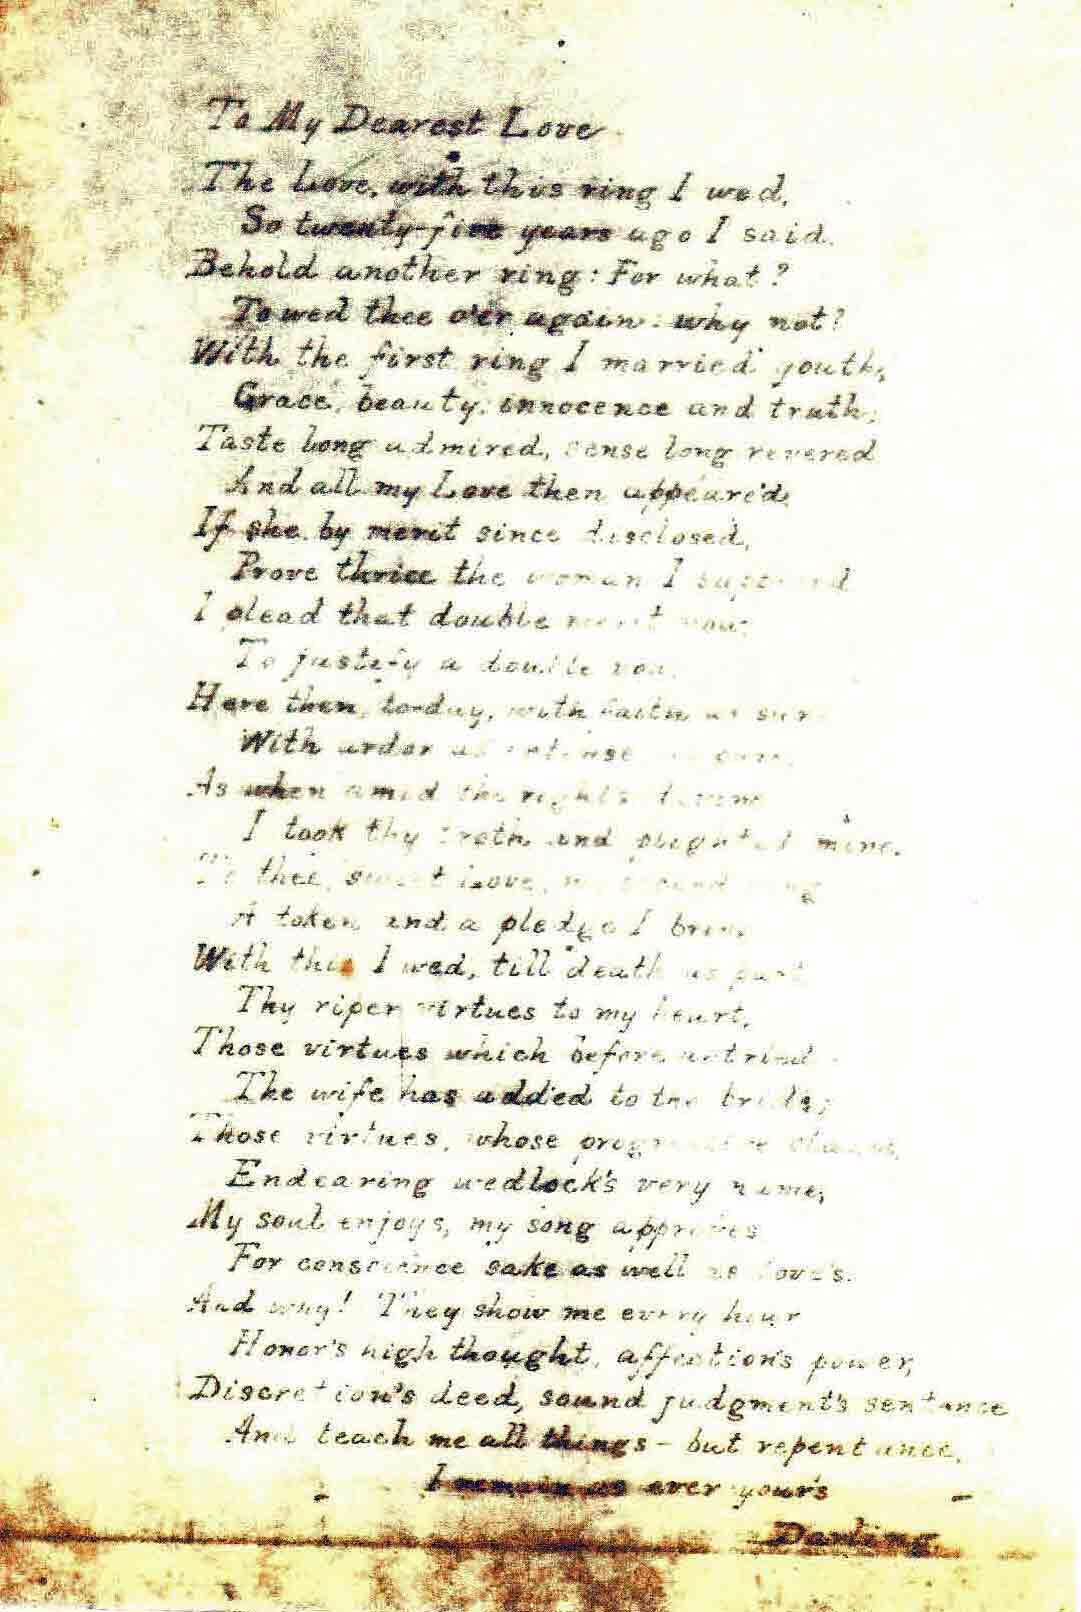 To My Dearest Love
The Love, with this ring I wed,
So twenty-five years ago I said.
Behold another ring: For what?
To wed thee o'er again: why not?
With the first ring I married youth,
Grace, beauty, innocence and truth;
Taste long admired, sense long revered
And all my Love then appeare'd;
If she by merit since disclosed,
Prove thrice the woman I supposed
I plead that double merit now
To justify a double vow.
Here then, to-day, with faith as sure
With ardor as intense as pure
As when amid the rights divine
I took thy troth and plighted mine.
To thee, sweet Love, my second ring
A token and a pledge I bring
With this I wed, till death us part
Thy riper virtues to my heart,
Those virtues which before untried
The wife has added to the bride;
Those virtues, whose progressive claims,
Endearing wedlock's very name,
My soul enjoys, my song approves
For conscience sake as well as love's.
And why! They show me every hour
Honor's high thought, affection's power,
Discretion's deed, sound judgment's sentence
And teach me all things - but repentance.
I remain as ever your's
Darling